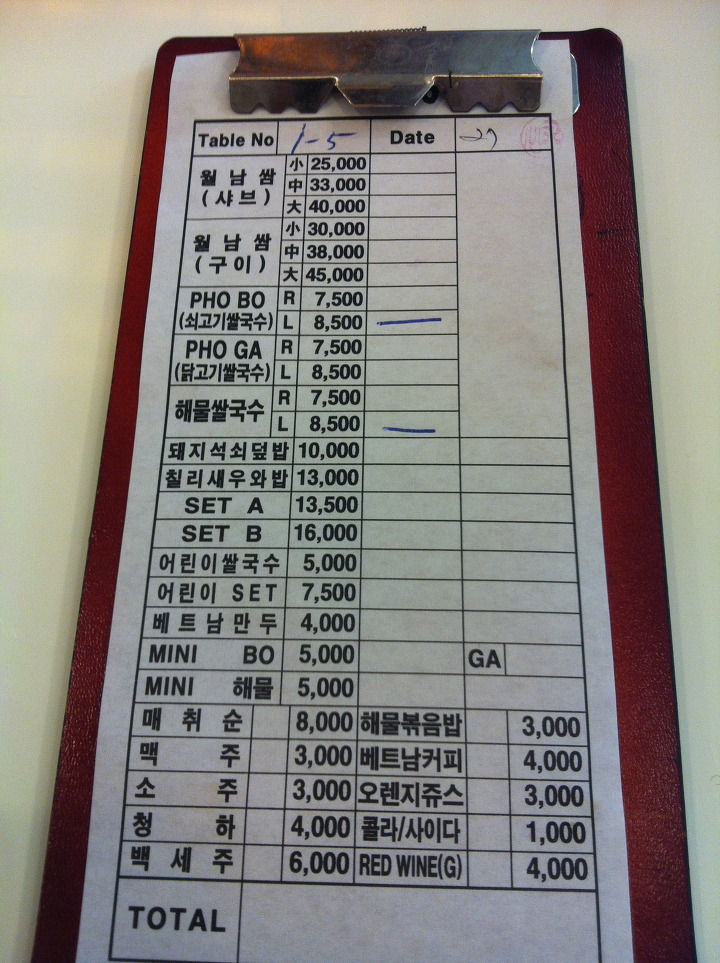 Table No 1-5 Date 27
월남쌈 小 25,000
(샤브) 中 33,000
大 40,000
월남쌈 小 30,000
(구이) 中 38,000
大 45,000
PHO BO R 7,500
(쇠고기쌀국수) L 8,500
PHO GA R 7,500
(닭고기쌀국수) L 8,500
해물쌀국수 R 7,500
L 8,500
돼지석쇠덮밥 10,000
칠리새우와밥 13,000
SET A 13,500
SET B 16,000
어린이쌀국수 5,000
어린이 SET 7,500
베트남만두 4,000
MINI BO 5,000 GA
MINI 해물 5,000
매취순 8,000 해물볶음밥 3,000
맥주 3,000 베트남커피 4,000
소주 3,000 오렌지쥬스 3,000
청하 4,000 콜라/사이다 1,000
백세주 6,000 RED WINE(G) 4,000
TOTAL